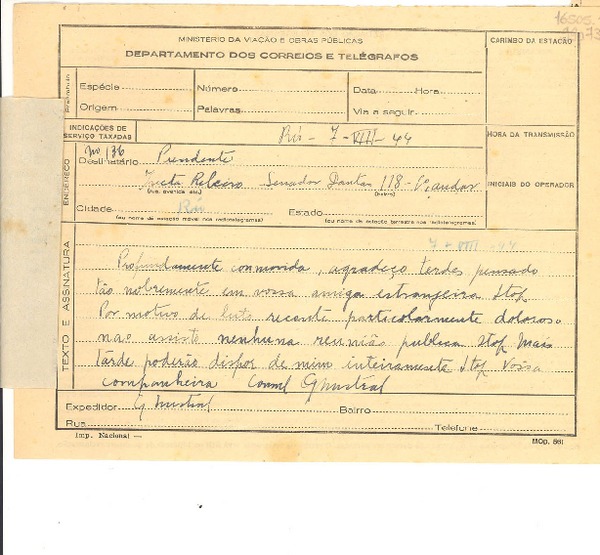 MINISTÉRIO DA VIAÇÃO E OBRAS PÚBLICAS
DEPARTAMENTO DOS CORREIOS E TELÉGRAFOS
CARIMBO DA ESTAÇÃO
Preâmbulo
Espécie
Número
Data
Hora
Origem
Palavras
Via a seguir
INDICAÇÕES DE SERVIÇO TAXADAS
Rio - 7 - VIII - 44
HORA DA TRANSMISSÃO
ENDEREÇO
Destinatário Presidente
Ribeiro Senador Dantas 118 - andar
INICIAIS DO OPERADOR
(rua, avenida, etc.)
(bairro)
Cidade Rio
Estado
(ou nome da estação móvel nos radiotelegramas)
(ou nome da estação terrestre nos radiotelegramas)
TEXTO E ASSINATURA
7 - VIII - 44
Profundamente conmovida, agradeço terdes pensado
tão nobremente em vossa amiga estrangeira Stop
Por motivo de luto recente particolarmente doloroso
nao assisto nenhuna reunião publica Stop Mais
tarde poderão dispor de mim inteiramente Stop Vossa
companheira Consul Gmistral
Expedidor G Mistral
Bairro
Rua
Telefone
Imp. Nacional —
MOD. 56